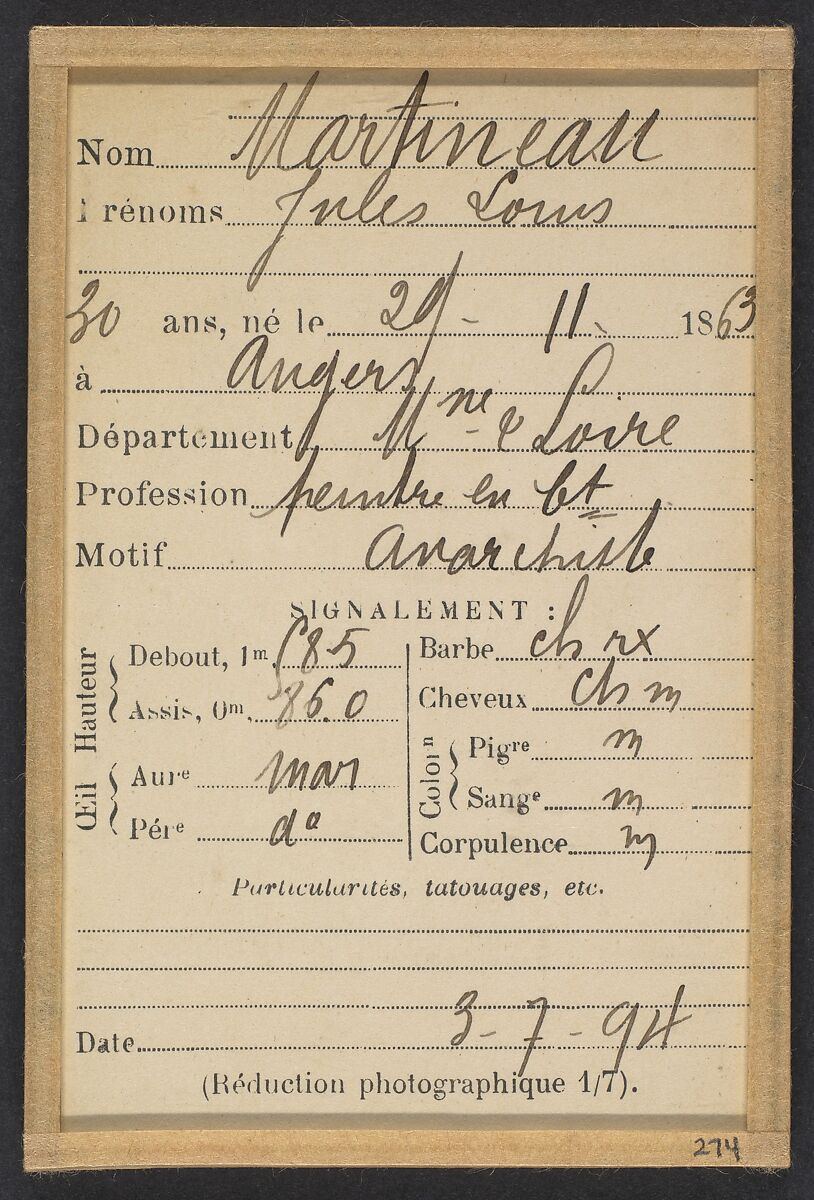 Nom Martineau
Prénoms Jules Louis
30 ans, né le 29 - 11 - 1863
à Angers
Département Mne & Loire
Profession peintre en bt
Motif Anarchiste
SIGNALEMENT :
Hauteur
Debout, 1m, 685
Assis, 0m, 86.0
Œil
Aure mar
Pére do
Barbe ch rx
Cheveux ch m
Colorn
Pigre m
Sange m
Corpulence m
Particularités, tatouages, etc.
Date 3 - 7 - 94
(Réduction photographique 1/7).
274